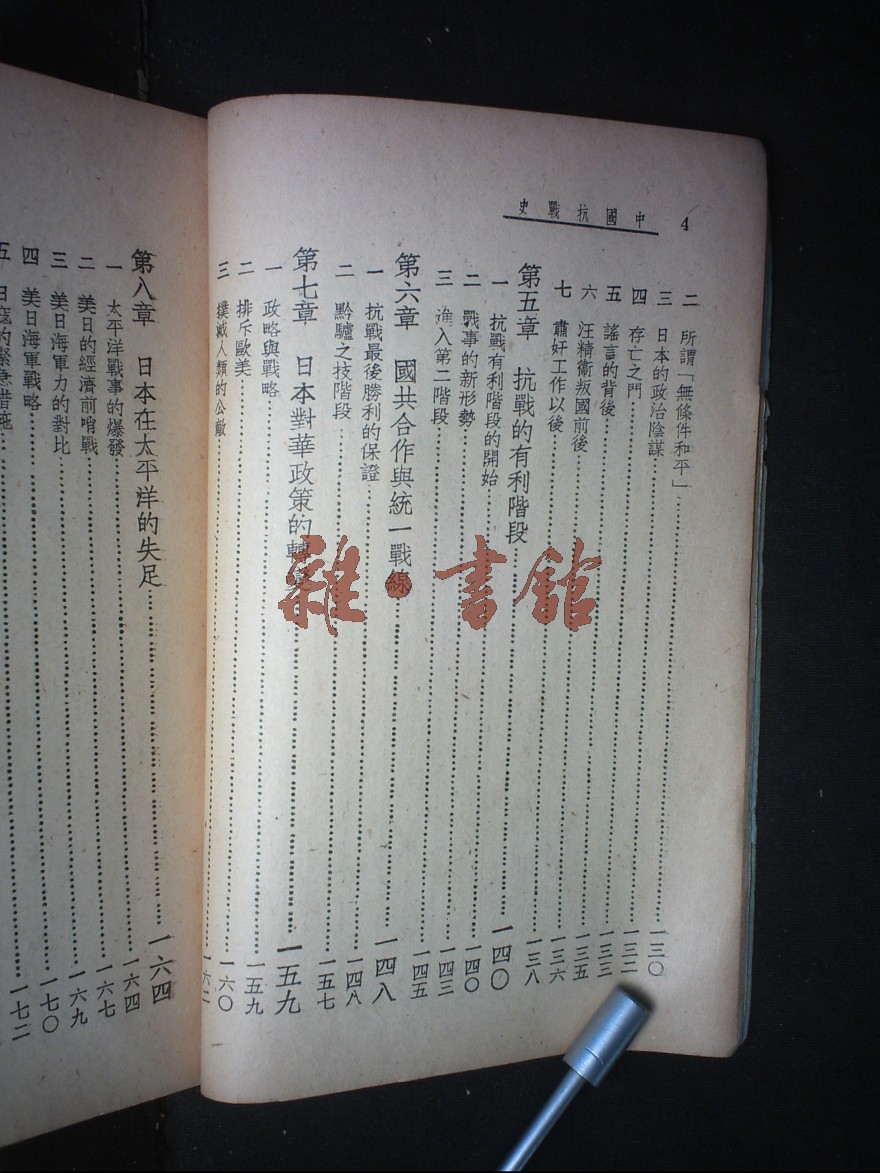 4
中國抗戰史
二 所謂「無條件和平」……一三〇
三 日本的政治陰謀……一三二
四 存亡之門……一三三
五 謠言的背後……一三五
六 汪精衛叛國前後……一三六
七 肅奸工作以後……一三八
第五章 抗戰的有利階段……一四〇
一 抗戰有利階段的開始……一四〇
二 戰事的新形勢……一四三
三 進入第二階段……一四五
第六章 國共合作與統一戰線……一四八
一 抗戰最後勝利的保證……一四八
二 黔驢之技階段……一五七
第七章 日本對華政策的轉變……一五九
一 政略與戰略……一五九
二 排斥歐美……一六〇
三 撲滅人類的公敵……一六二
第八章 日本在太平洋的失足……一六四
一 太平洋戰事的爆發……一六四
二 美日的經濟前哨戰……一六七
三 美日海軍力的對比……一六九
四 美日海軍戰略……一七〇
五 日寇的緊急措施……一七二
雜書館